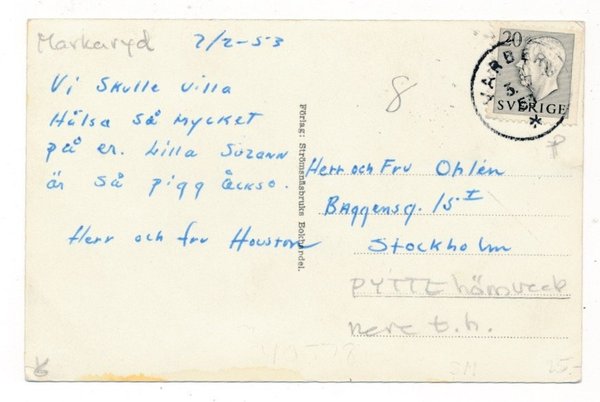 Markaryd 2/2-53
Vi skulle villa
Hälsa så mycket
på er. Lilla Suzann
är så pigg åckso.
Herr och fru Houston
Förlag: Strömsnäsbruks Bokhandel.
8
20
SVERIGE
VARBERG
3.
Herr och Fru Ohlén
Baggensg. 15 I
Stockholm
PYTTE
nere t.h.
15.-